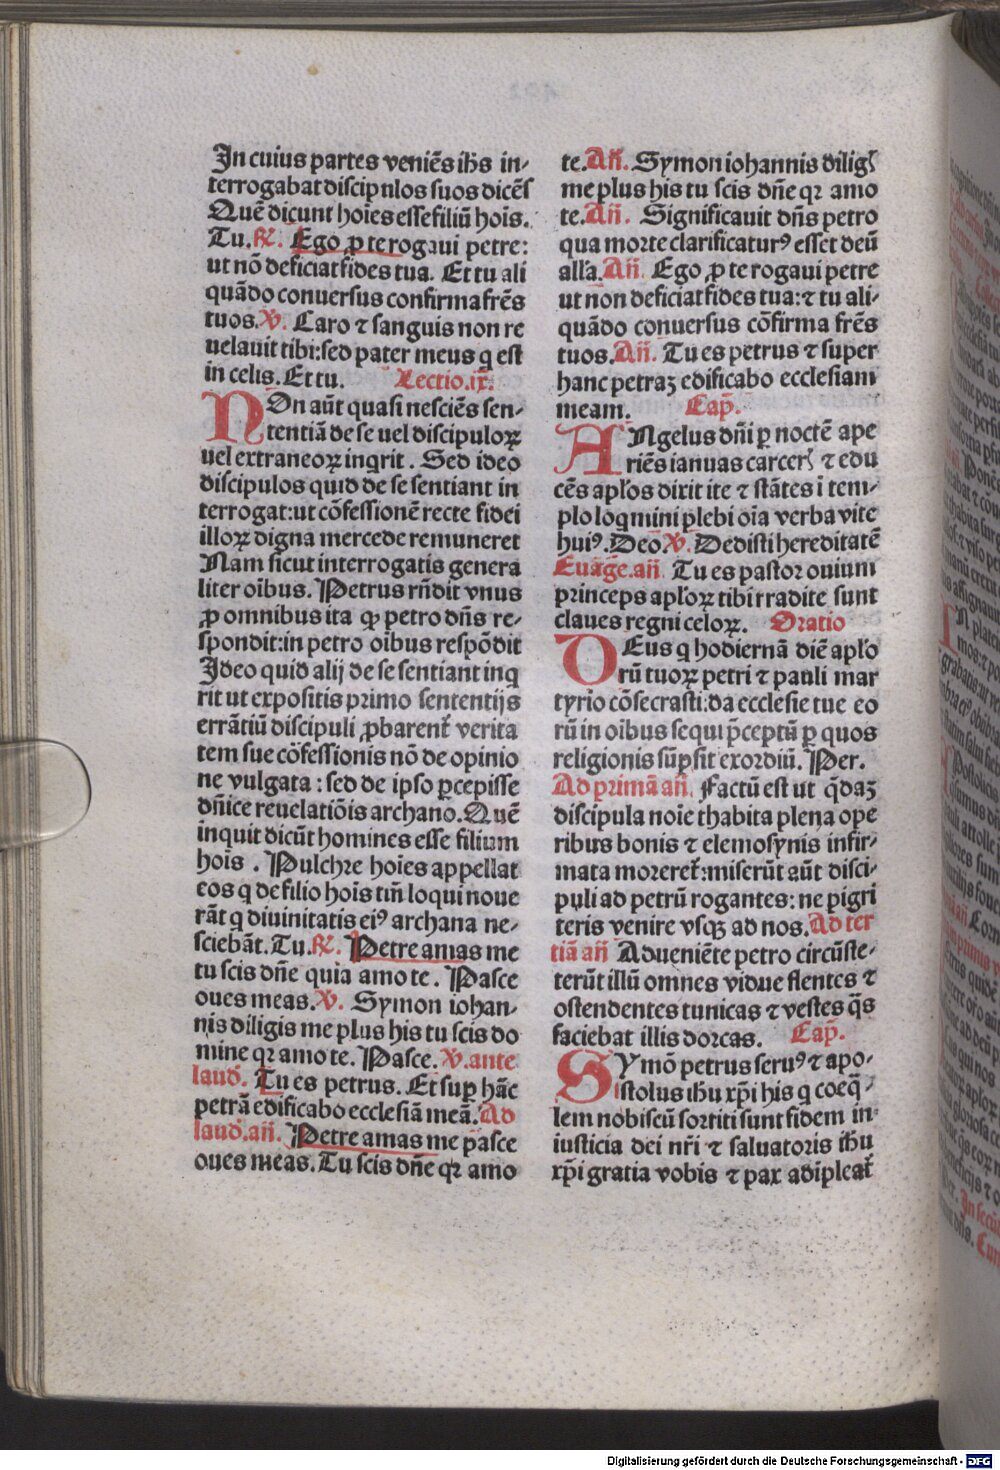 In cuius partes veniēs ih̄s in-
terrogabat discipulos suos dicēs
Quē dicunt hoīes esse filiū hoīs.
Tu. ℟. Ego ꝓ te rogaui petre:
ut nō deficiat fides tua. Et tu ali
quādo conuersus confirma frēs
tuos. ℣. Caro ⁊ sanguis non re
uelauit tibi: sed pater meus q̄ est
in celis. Et tu. Lectio .ix.
NOn aūt quasi nesciēs sen-
tentiā de se uel discipuloꝝ
uel extraneoꝝ inqrit. Sed ideo
discipulos quid de se sentiant in
terrogat: ut cōfessionē recte fidei
illoꝝ digna mercede remuneret
Nam sicut interrogatis genera
liter oībus. Petrus rn̄dit vnus
ꝓ omnibus ita qꝫ petro dn̄s re-
spondit: in petro oībus respōdit
Ideo quid alij de se sentiant inq
rit ut expositis primo sententijs
errātiū discipuli ꝓbarent᷑ verita
tem sue cōfessionis nō de opinio
ne vulgata: sed de ipso ꝑcepisse
dn̄ice reuelatiōis archano. Quē
inquit dicūt homines esse filium
hoīs. Pulchre hoīes appellat
eos q de filio hoīs tm̄ loqui noue
rāt q diuinitatis eiꝰ archana ne-
sciebāt. Tu. ℟. Petre amas me
tu scis dn̄e quia amo te. Pasce
oues meas. ℣. Symon iohan-
nis diligis me plus his tu scis do
mine qꝛ amo te. Pasce. ℣. ante
laud̄. Tu es petrus. Et suꝑ hāc
petrā edificabo ecclesiā meā. Ad
laud̄. an̄. Petre amas me pasce
oues meas. Tu scis dn̄e qꝛ amo
te. An̄. Symon iohannis dilig̃
me plus his tu scis dn̄e qꝛ amo
te. An̄. Significauit dn̄s petro
qua morte clarificaturꝰ esset deū
all̄a. An̄. Ego ꝓ te rogaui petre
ut non deficiat fides tua: ⁊ tu ali-
quādo conuersus cōfirma frēs
tuos. An̄. Tu es petrus ⁊ super
hanc petraꝫ edificabo ecclesiam
meam. Cap̄.
ANgelus dn̄i ꝑ noctē ape
riēs ianuas carcer̃ ⁊ edu
cēs apl̄os dixit ite ⁊ stātes ī tem-
plo loqmini plebi oīa verba vite
huiꝰ. Deo. ℣. Dedisti hereditatē
Euāge. an̄. Tu es pastor ouium
princeps apl̄oꝝ tibi tradite sunt
claues regni celoꝝ. Oratio
DEus q hodiernā diē apl̄o
rū tuoꝝ petri ⁊ pauli mar
tyrio cōsecrasti: da ecclesie tue eo
rū in oībus sequi p̄ceptū ꝑ quos
religionis sūpsit exordiū. Per.
Ad primā an̄. Factū est ut q̄daꝫ
discipula noīe thabita plena ope
ribus bonis ⁊ elemosynis infir-
mata moreret᷑: miserūt aūt disci-
puli ad petrū rogantes: ne pigri
teris venire vsqꝫ ad nos. Ad ter
tiā an̄ Adueniēte petro circūste-
terūt illū omnes vidue flentes ⁊
ostendentes tunicas ⁊ vestes q̄s
faciebat illis dorcas. Cap̄.
SYmō petrus seruꝰ ⁊ apo-
stolus ih̄u xp̄i his q coeq̄-
lem nobiscū sortiti sunt fidem in
iusticia dei nr̄i ⁊ saluatoris ih̄u
xp̄i gratia vobis ⁊ pax adipleat᷑
Digitalisierung gefördert durch die Deutsche Forschungsgemeinschaft - DFG